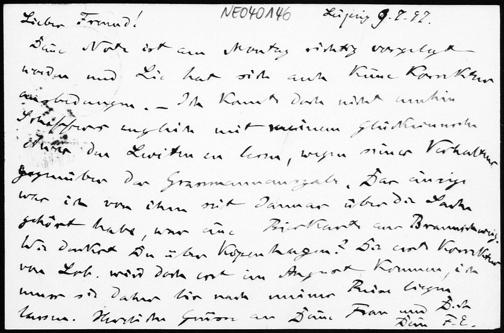 NE040146
Leipzig 9.7.97.
Lieber Freund!
Deine Note ist am Montag richtig vorgelegt
worden und Lie hat sich auch keine Korrektur
ausbedungen. – Ich konnte doch nicht umhin
zugleich mit meinem Glückwunsch
den Leviten zu lesen, wegen seines Verhaltens
gegenüber der Grassmannausgabe. Das einzige
was ich von ihm seit Januar über die Sache
gehört habe, war eine Bierkarte aus Braunschweig.
Wie denkst Du über Kopenhagen? Die erste Korrektur
von Lob. wird doch erst im August kommen, ich
muss sie daher bis nach meiner Reise liegen
lassen. Herzliche Grüsse an Deine Frau und Dich
Dein F.E.